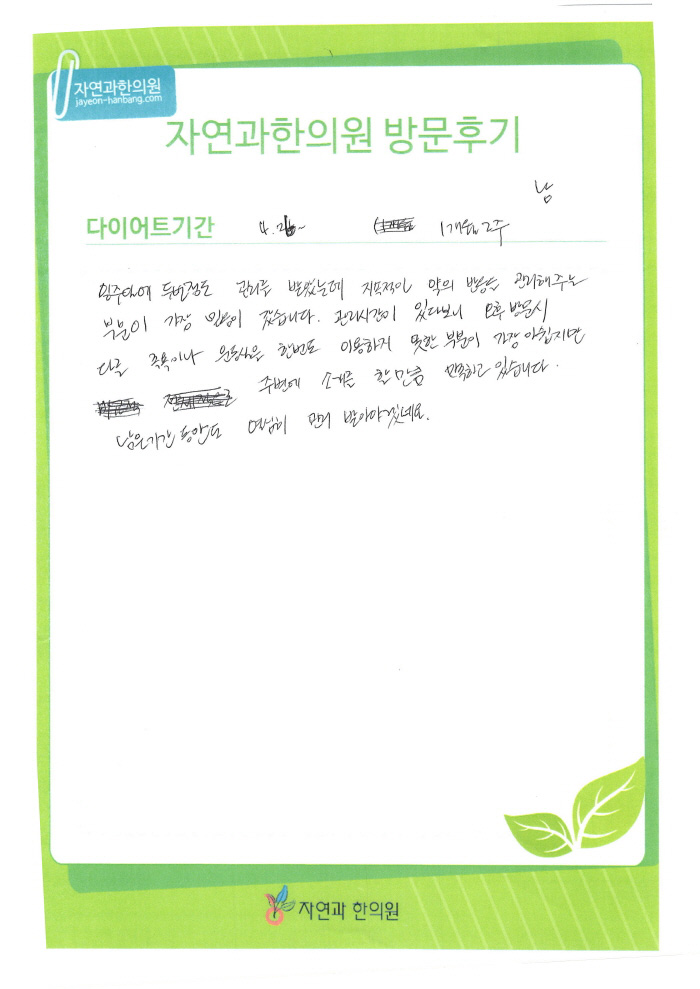 자연과한의원
jayeon-hanbang.com
자연과한의원 방문후기
남
다이어트기간 4.26~ 1개월 2주
일주일에 두번정도 관리를 받았는데 지속적인 약의 반응을 관리해주는
부분이 가장 믿음이 갔습니다. 관리시간이 있다보니 오후 방문시
다른 족욕이나 운동실은 한번도 이용하지 못한 부분이 가장 아쉽지만
주변에 소개를 할만큼 만족하고 있습니다.
남은기간 동안도 열심히 관리 받아야겠네요.
자연과 한의원